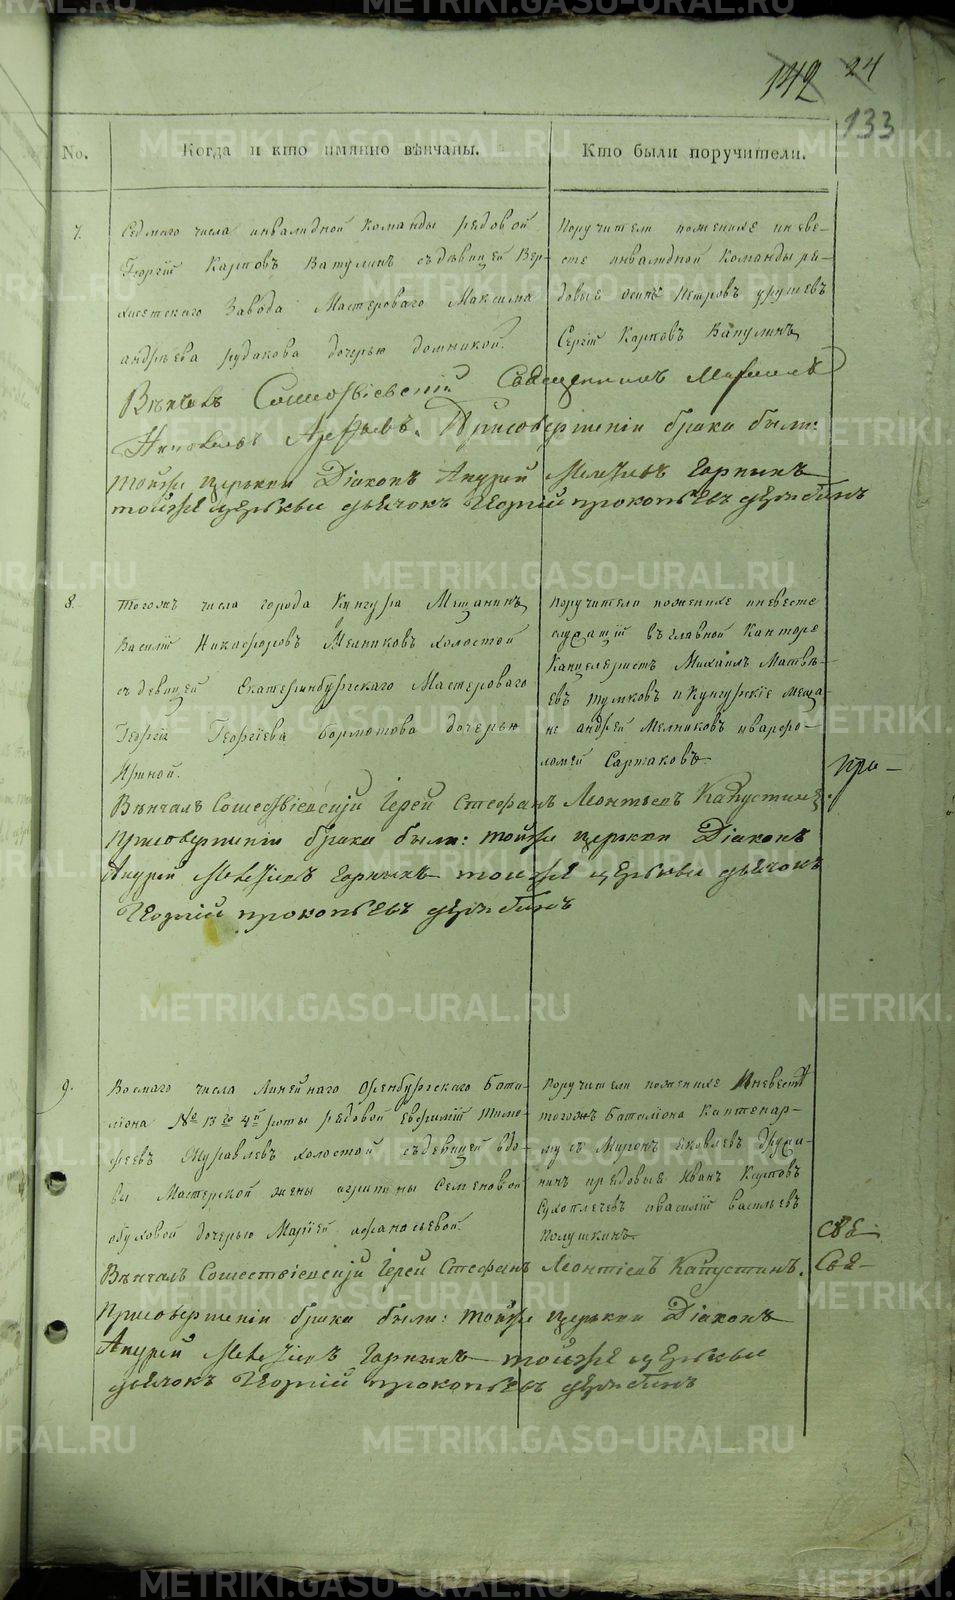 142 24
133
No.
Когда и кто имянно вѣнчаны.
Кто были поручители.
7.
Седмаго числа инвалидной Команды рядовой
Георгій Карповъ Ватулинъ съ дѣвицей Вер-
хисетскаго Завода Мастероваго Максима
андрѣева рудакова дочерью домникой.
Поручители по женихе и неве-
сте инвалидной Команды ря-
довые осипъ Петровъ
Сергій Карповъ Ватулинъ
Вѣнчалъ Сошествіевскій Священникъ
При совершеніи брака были:
тойже церкви Діаконъ Андрей
тойже церкви дьячокъ Георгій прокопьевъ
8.
Тогожъ числа города Кунгура Мѣщанинъ
Василій Никифоровъ Мелниковъ холостой
съ девицей Екатеринбургскаго Мастероваго
Георгія Георгіева бормотова дочерью
Поручители по женихе и невесте
служащій в главной Канторе
Канцеляристъ Михаилъ Матвѣ-
евъ и Кунгурскіе меща-
не андрей Мелниковъ и варфо-
ломей Сартаковъ
при-
Вѣнчалъ Сошествіевскій Іерей Стефанъ Леонтьевъ Капустинъ.
При совершеніи брака были: тойже церкви Діаконъ
Андрей тойже церкви дьячокъ
Георгій прокопьевъ
9.
Восмаго числа Линейнаго Оренбургскаго Бата-
ліона № 13го 4й роты рядовой Евфимій Тимо-
феевъ Журавлевъ холостой съ девицей вдо-
вы Мастерской жены агрипины Семеновой
обуховой дочерью Маріей афанасьевой.
Поручители по женихе и невесте
тогожъ Баталіона Каптенар-
мусъ Миронъ яковлевъ Дружи-
нинъ и рядовые Иванъ Карповъ
Сухоплечевъ и василій васильевъ
Полушкинъ
Свя-
Свя-
Вѣнчалъ Сошествіевскій Іерей Стефанъ Леонтіевъ Капустинъ.
При совершеніи брака были: тойже церкви Діаконъ
Андрей тойже церкви
дьячокъ Георгій прокопьевъ